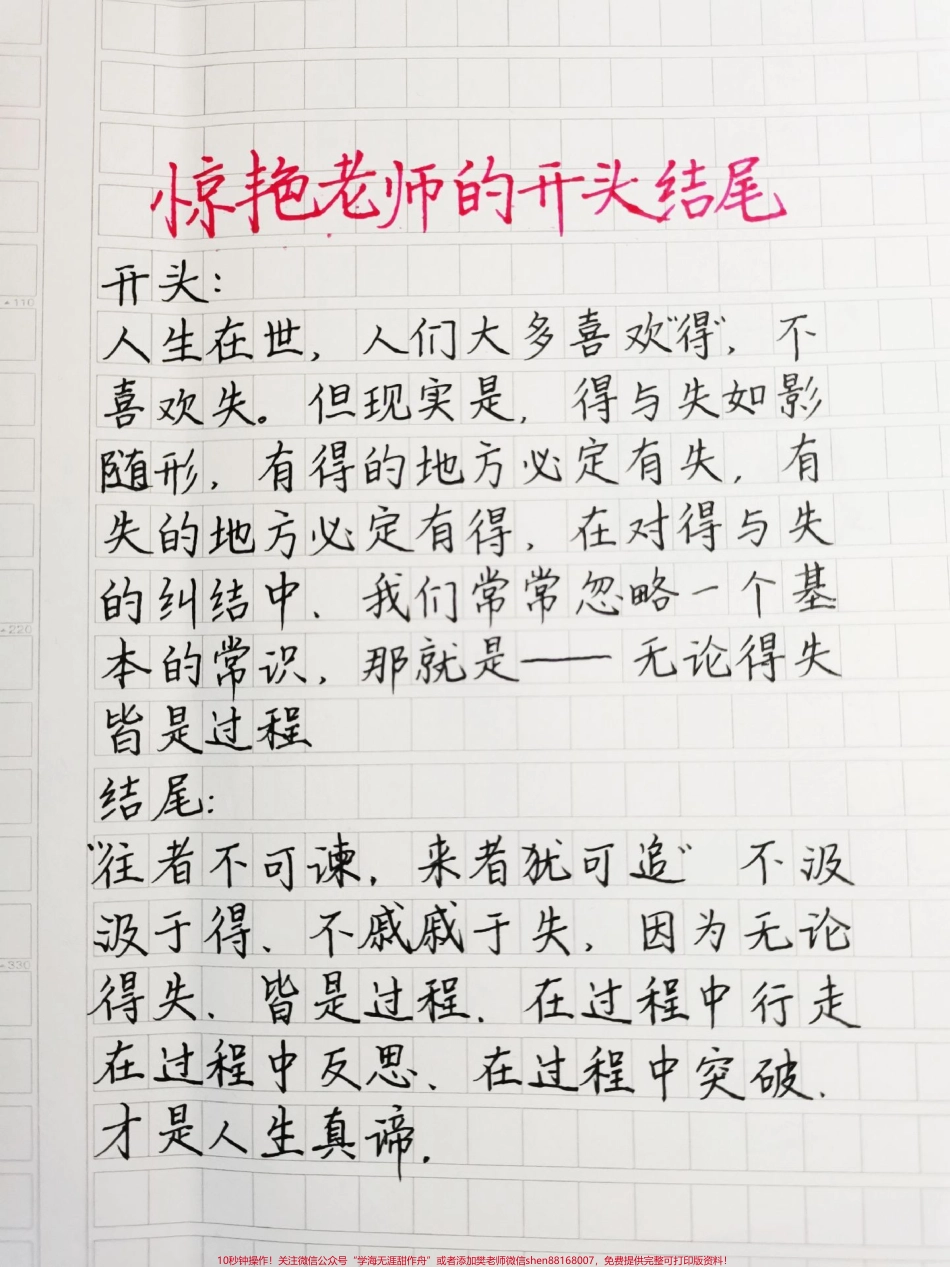 惊艳老师的开头结尾
开头：
人生在世，人们大多喜欢"得"，不
喜欢失。但现实是，得与失如影
随形，有得的地方必定有失，有
失的地方必定有得，在对得与失
的纠结中、我们常常忽略一个基
本的常识，那就是——无论得失
皆是过程
结尾：
"往者不可谏，来者犹可追" 不汲
汲于得、不戚戚于失，因为无论
得失、皆是过程．在过程中行走
在过程中反思、在过程中突破．
才是人生真谛．
110
220
330
10秒钟操作！关注微信公众号“学海无涯甜作舟”或者添加樊老师微信shen88168007，免费提供完整可打印版资料！